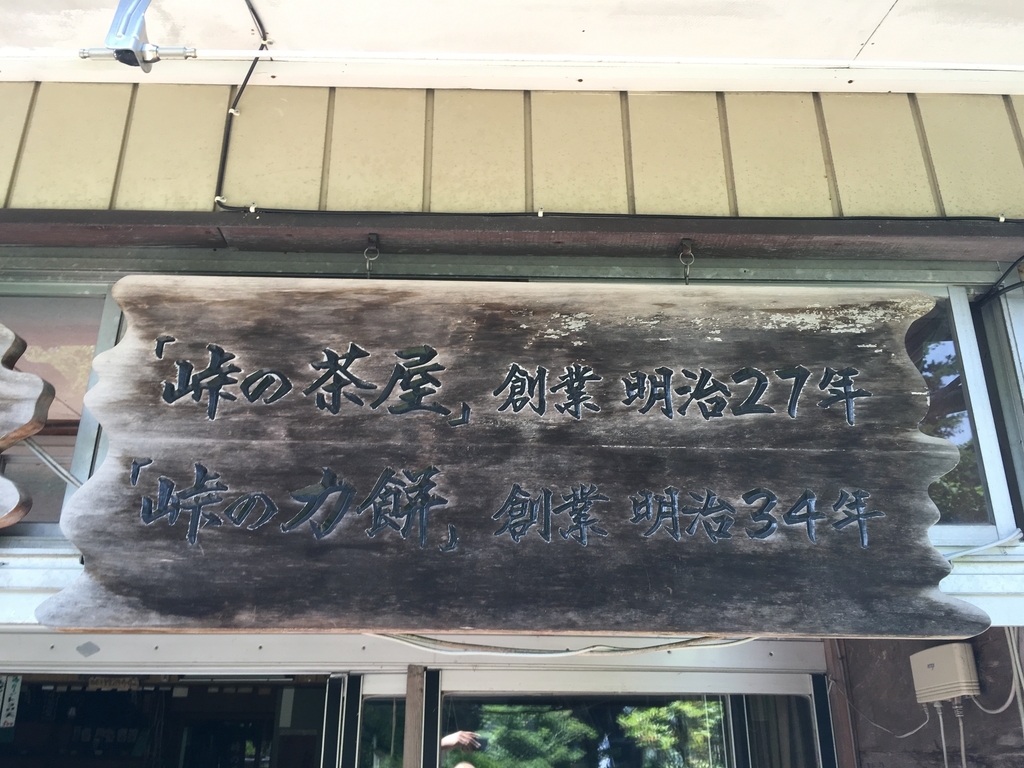 「峠の茶屋」創業 明治27年
「峠の力餅」創業 明治34年